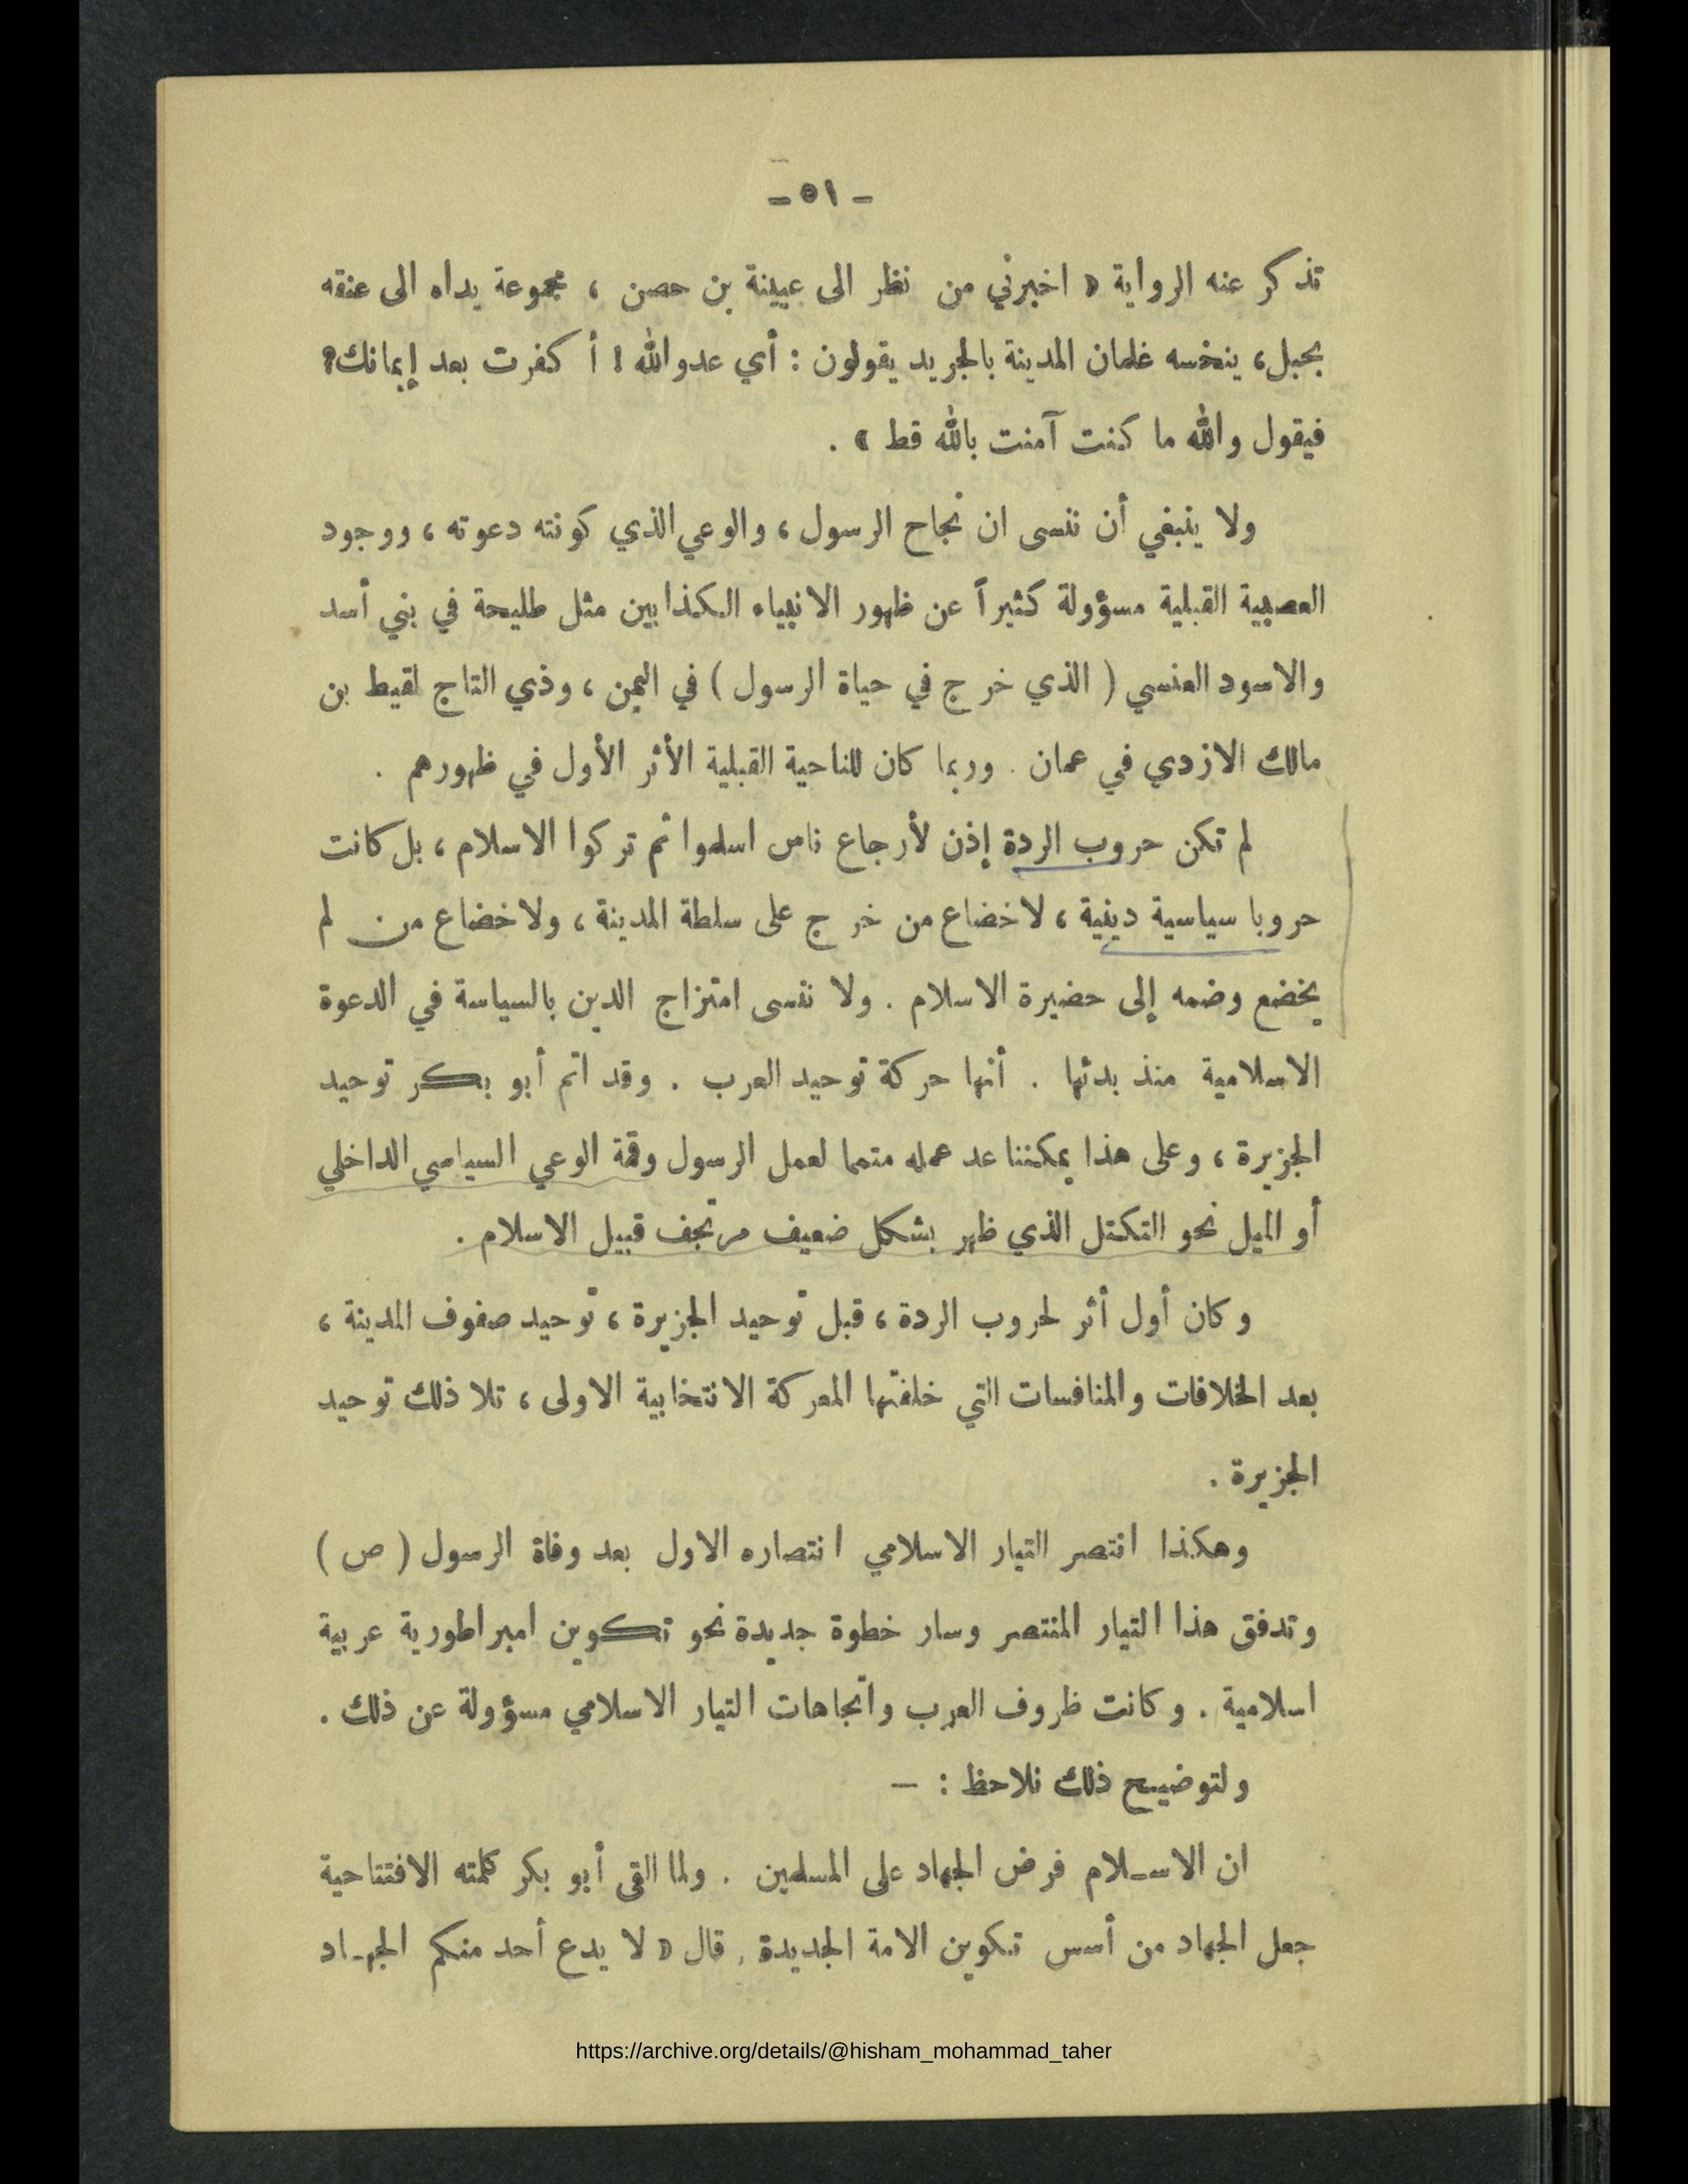 - ٥١ -
تذكر عنه الرواية « اخبرني من نظر الى عيينة بن حصن ، مجموعة يداه الى عنقه
بحبل، ينخسه غلمان المدينة بالجريد يقولون : أي عدو الله ! أ كفرت بعد إيمانك؟
فيقول والله ما كنت آمنت بالله قط » .
ولا ينبغي أن ننسى ان نجاح الرسول ، والوعي الذي كونته دعوته ، ووجود
العصبية القبلية مسؤولة كثيراً عن ظهور الانبياء الكذابين مثل طليحة في بني أسد
والاسود العنسي ( الذي خرج في حياة الرسول ) في اليمن ، وذي التاج لقيط بن
مالك الازدي في عمان . وربما كان للناحية القبلية الأثر الأول في ظهورهم .
لم تكن حروب الردة إذن لأرجاع ناس اسلموا ثم تركوا الاسلام ، بل كانت
حروبا سياسية دينية ، لاخضاع من خرج على سلطة المدينة ، ولاخضاع من لم
يخضع وضمه إلى حضيرة الاسلام . ولا ننسى امتزاج الدين بالسياسة في الدعوة
الاسلامية منذ بدئها . أنها حركة توحيد العرب . وقد اتم أبو بكر توحيد
الجزيرة ، وعلى هذا يمكننا عد عمله متمما لعمل الرسول وقمة الوعي السياسي الداخلي
أو الميل نحو التكتل الذي ظهر بشكل ضعيف مرتجف قبيل الاسلام .
وكان أول أثر لحروب الردة ، قبل توحيد الجزيرة ، توحيد صفوف المدينة ،
بعد الخلافات والمنافسات التي خلفتها المعركة الانتخابية الاولى ، تلا ذلك توحيد
الجزيرة .
وهكذا انتصر التيار الاسلامي انتصاره الاول بعد وفاة الرسول ( ص )
وتدفق هذا التيار المنتصر وسار خطوة جديدة نحو تكوين امبراطورية عربية
اسلامية . وكانت ظروف العرب واتجاهات التيار الاسلامي مسؤولة عن ذلك .
ولتوضيح ذلك نلاحظ : —
ان الاسـلام فرض الجهاد على المسلمين . ولما القى أبو بكر كلمته الافتتاحية
جعل الجهاد من أسس تكوين الامة الجديدة . قال « لا يدع أحد منكم الجهـاد
https://archive.org/details/@hisham_mohammad_taher